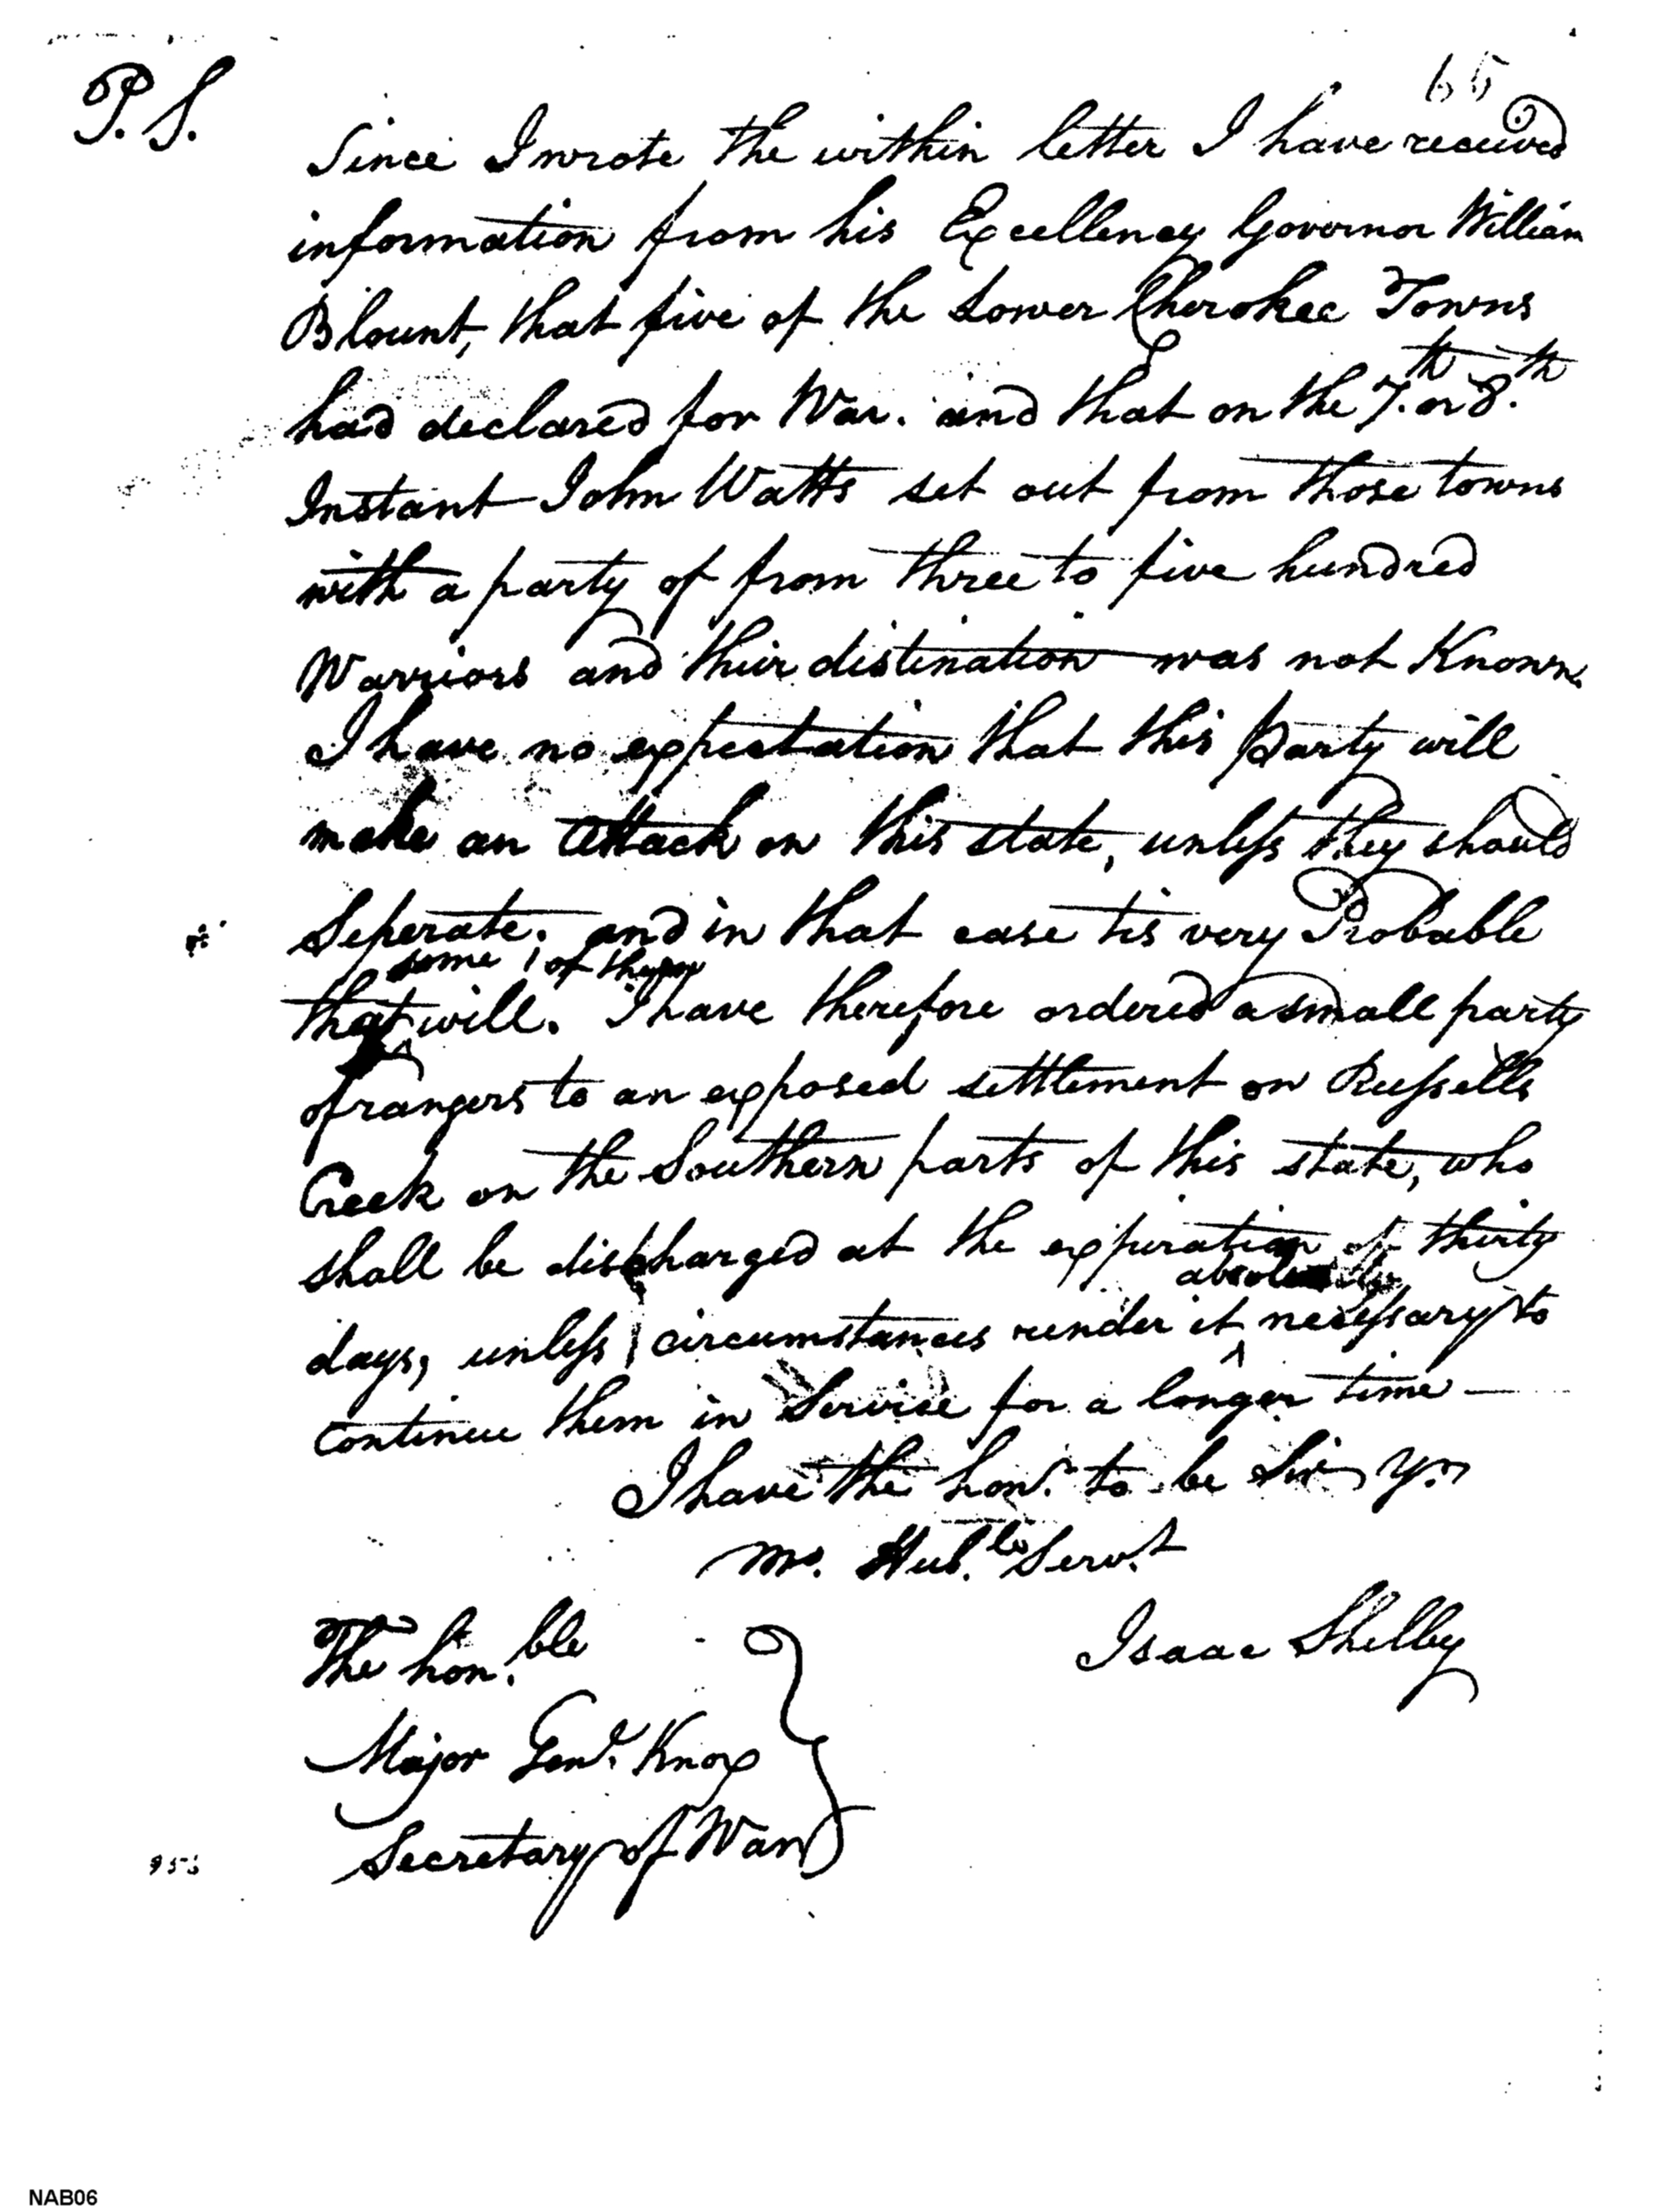 65
P.S.
Since I wrote the within letter I have received
information from his Excellency Governor William
Blount, that five of the Lower Cherokee Towns
had declared for War. and that on the 7.th or 8.th
Instant John Watts set out from those towns
with a party of from three to five hundred
Warriors and their distination was not Known.
I have no expectation that this party will
make an attack on this state, unless they should
Seperate, and in that case tis very Probable
some of them
that will. I have therefore ordered a small party
of rangers to an exposed settlement on Russells
Creek on the Southern parts of this state, who
shall be discharged at the expiration of thirty
absolutely
days, unless circumstances render it ^ necessary to
continue them in Service for a longer time —
I have the hon.r to be Sir yr.
mo. Hub.le Serv.t
Isaac Shelby
The hon.ble
Major Genl. Knox
Secretary of War
955
NAB06